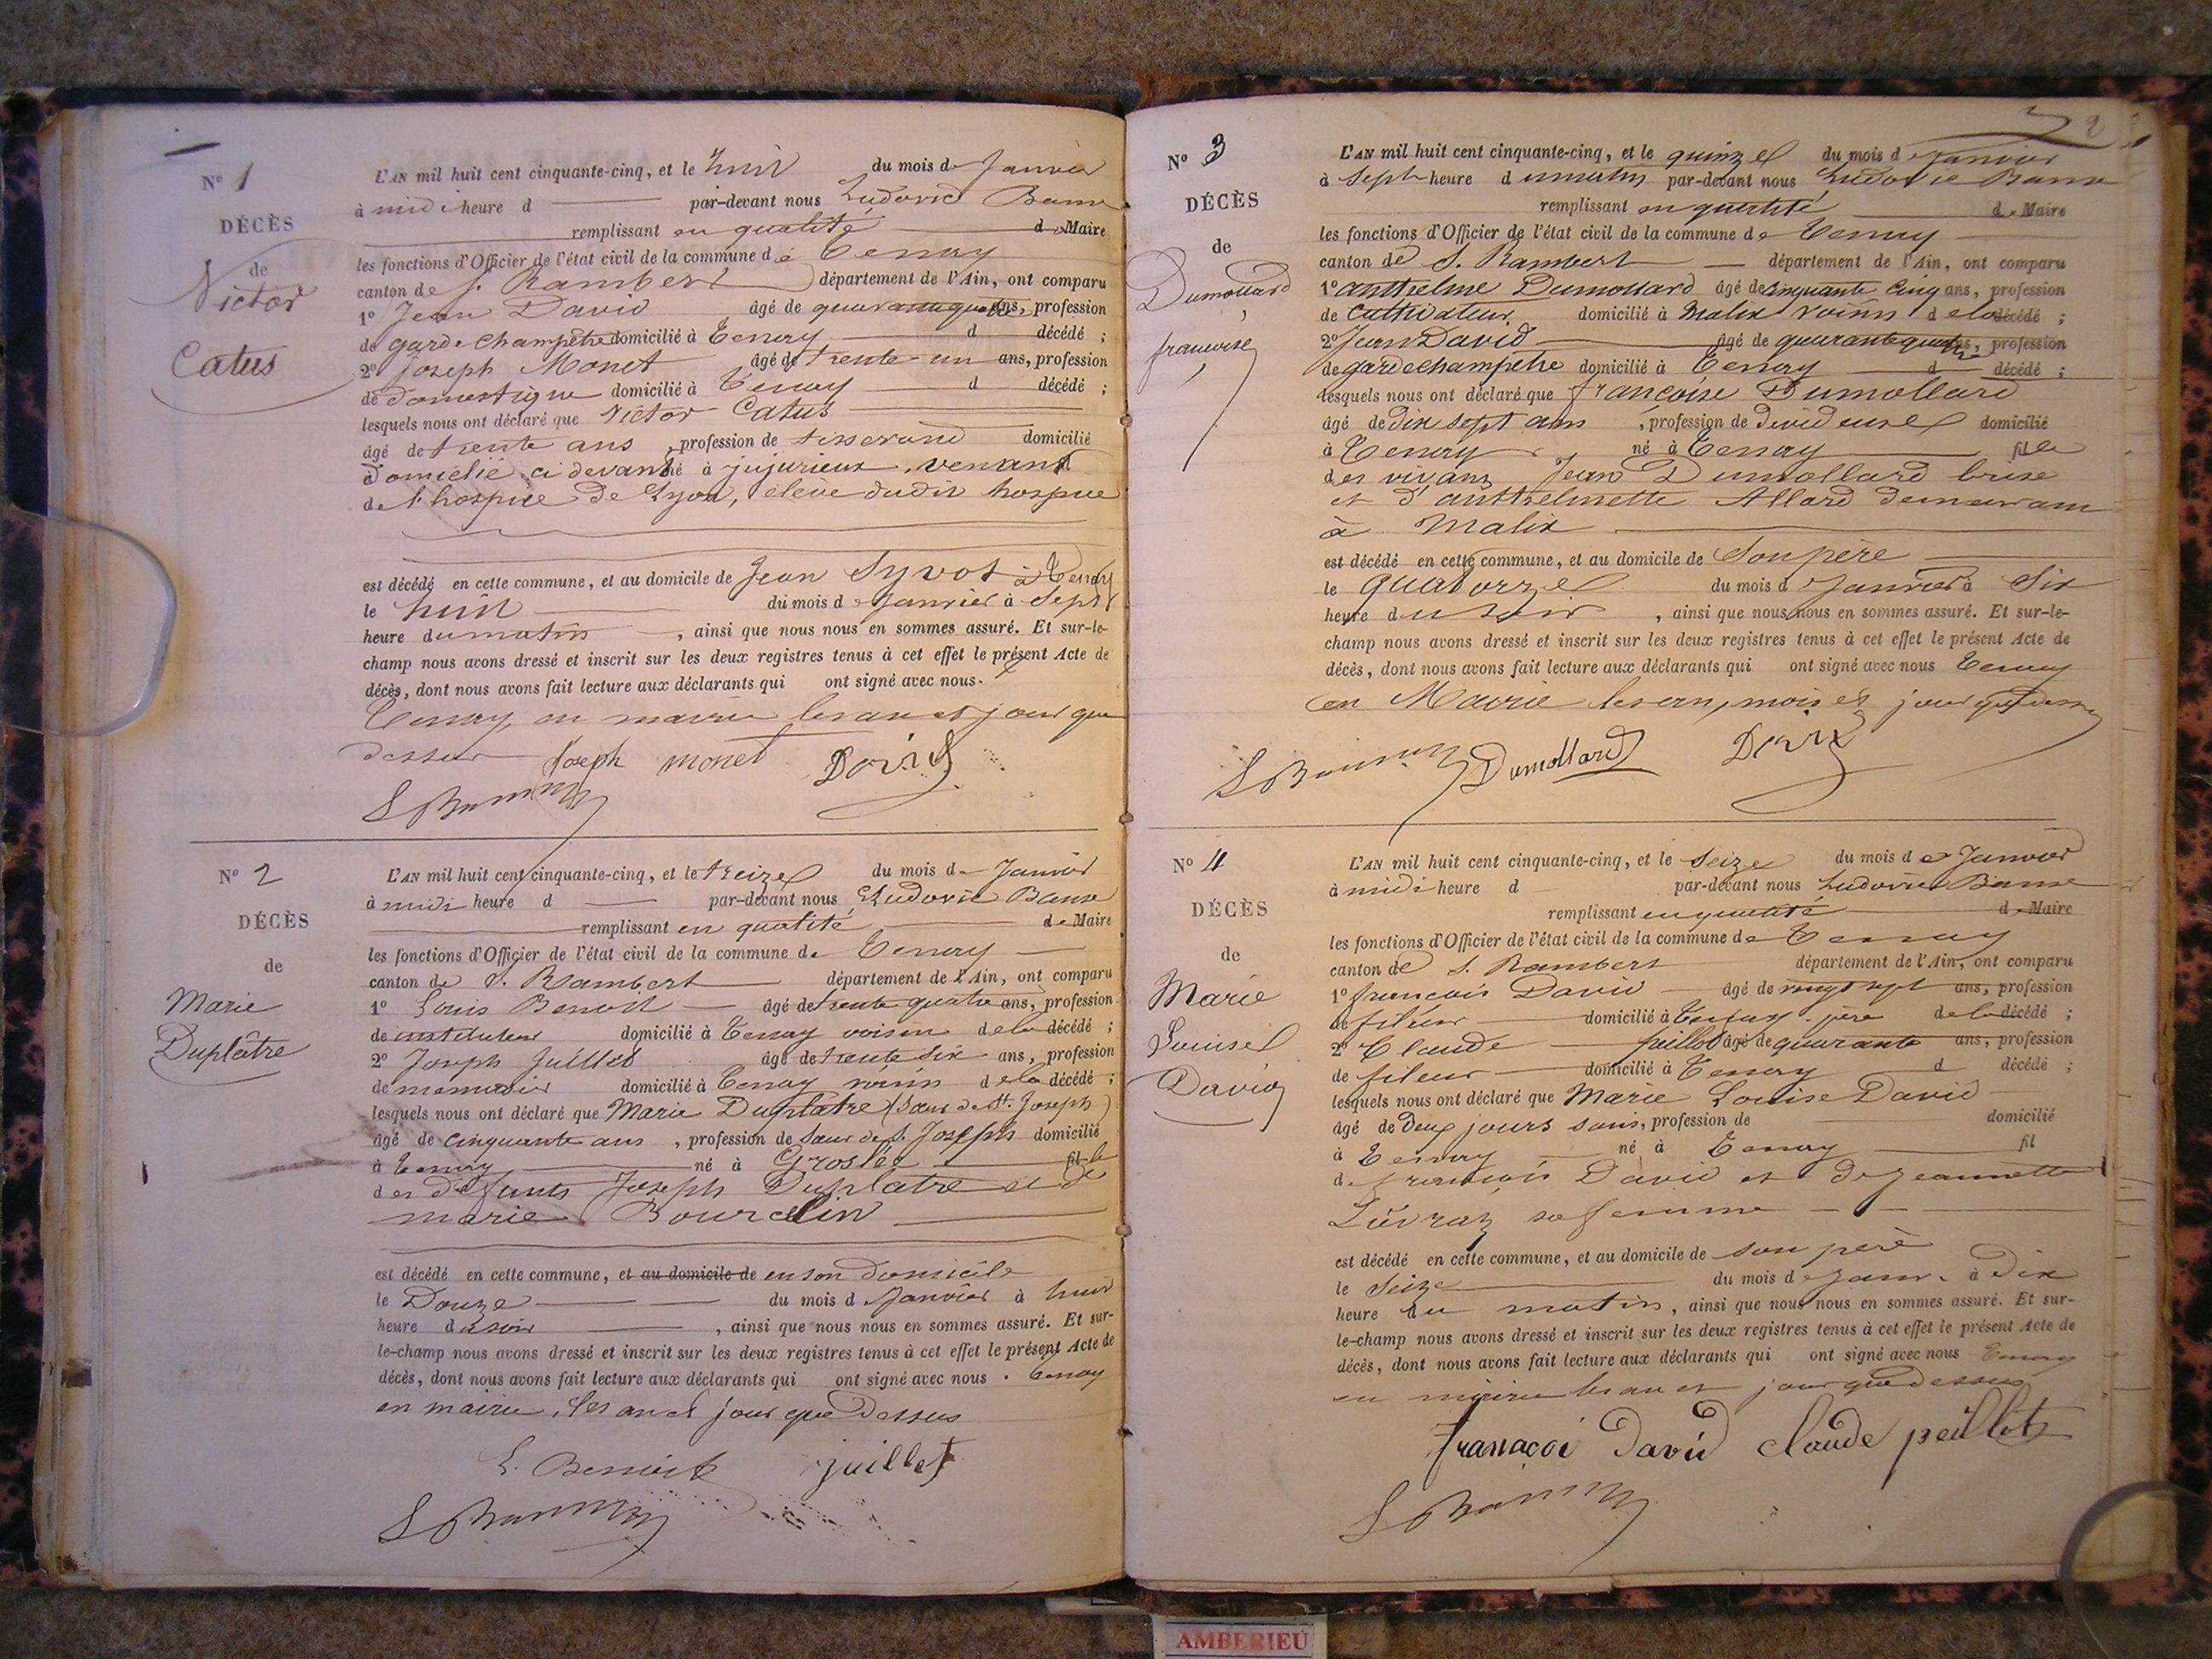 N° 1
DÉCÈS
de
Victor
Catus
L'AN mil huit cent cinquante-cinq, et le huit du mois de Janvier
à midi heure d par-devant nous Ludovic
remplissant en qualité de Maire
les fonctions d'Officier de l'état civil de la commune de Tenay
canton de S. Rambert département de l'Ain, ont comparu
1° Jean David âgé de quarante quatre ans, profession
de garde champêtre domicilié à Tenay d décédé ;
2° Joseph Monet âgé de trente-un ans, profession
de domestique domicilié à Tenay d décédé ;
lesquels nous ont déclaré que Victor Catus
âgé de trente ans, profession de tisserand domicilié
à Domicilié ci devant né à jujurieux, venant
de l'hospice de Lyon, élève dudit hospice
est décédé en cette commune, et au domicile de Jean Syvot à Tenay
le huit du mois de Janvier à Sept
heure du matin, ainsi que nous nous en sommes assuré. Et sur-le-
champ nous avons dressé et inscrit sur les deux registres tenus à cet effet le présent Acte de
décès, dont nous avons fait lecture aux déclarants qui ont signé avec nous.
Tenay, en mairie les an et jour que
dessus Joseph monet David
N° 2
DÉCÈS
de
Marie
Duplâtre
L'AN mil huit cent cinquante-cinq, et le treize du mois de Janvier
à midi heure d par-devant nous Ludovic
remplissant en qualité de Maire
les fonctions d'Officier de l'état civil de la commune de Tenay
canton de S. Rambert département de l'Ain, ont comparu
1° Louis Benoit âgé de trente quatre ans, profession
de instituteur domicilié à Tenay voisin de la décédé ;
2° Joseph Juillet âgé de trente six ans, profession
de menuisier domicilié à Tenay voisin de la décédé ;
lesquels nous ont déclaré que Marie Duplâtre (Sœur de St. Joseph)
âgé de cinquante ans, profession de Sœur de S. Joseph domicilié
à Tenay né à Groslée fille
des défunts Joseph Duplatre et de
marie Bourcelin
est décédé en cette commune, et au domicile de en son domicile
le Douze du mois de Janvier à huit
heure du soir, ainsi que nous nous en sommes assuré. Et sur-
le-champ nous avons dressé et inscrit sur les deux registres tenus à cet effet le présent Acte de
décès, dont nous avons fait lecture aux déclarants qui ont signé avec nous. Tenay
en mairie, les an et jour que Dessus
L. Benoit juillet
2
N° 3
DÉCÈS
de
Dumollard
francoise
L'AN mil huit cent cinquante-cinq, et le quinze du mois de Janvier
à Sept heure du matin par-devant nous Ludovic
remplissant en qualité de Maire
les fonctions d'Officier de l'état civil de la commune de Tenay
canton de S. Rambert département de l'Ain, ont comparu
1° anthelme Dumollard âgé de cinquante cinq ans, profession
de Cultivateur domicilié à Malix voisin de la décédé ;
2° Jean David âgé de quarante quatre ans, profession
de garde champêtre domicilié à Tenay d décédé ;
lesquels nous ont déclaré que francoise Dumollard
âgé de dix sept ans, profession de devideuse domicilié
à Tenay né à Tenay fille
des vivans Jean Dumollard brise
et d'anthelmette Allard demeurant
à Malix
est décédé en cette commune, et au domicile de Son père
le quatorze du mois de Janvier à Six
heure du soir, ainsi que nous nous en sommes assuré. Et sur-le-
champ nous avons dressé et inscrit sur les deux registres tenus à cet effet le présent Acte de
décès, dont nous avons fait lecture aux déclarants qui ont signé avec nous Tenay
en Mairie les an, mois et jour que dessus
Dumollard David
N° 4
DÉCÈS
de
Marie
Louise
David
L'AN mil huit cent cinquante-cinq, et le Seize du mois de Janvier
à midi heure d par-devant nous Ludovic
remplissant en qualité de Maire
les fonctions d'Officier de l'état civil de la commune de Tenay
canton de S. Rambert département de l'Ain, ont comparu
1° francois David âgé de vingt sept ans, profession
de fileur domicilié à Tenay père de la décédé ;
2° Claude peillot âgé de quarante ans, profession
de fileur domicilié à Tenay d décédé ;
lesquels nous ont déclaré que Marie Louise David
âgé de Deux jours sans, profession de domicilié
à Tenay né à Tenay fil
de francois David et de Jeannette
sa femme
est décédé en cette commune, et au domicile de son père
le Seize du mois de Janv. à Dix
heure du matin, ainsi que nous nous en sommes assuré. Et sur-
le-champ nous avons dressé et inscrit sur les deux registres tenus à cet effet le présent Acte de
décès, dont nous avons fait lecture aux déclarants qui ont signé avec nous Tenay
en mairie les an et jour que dessus
David claude peillot
AMBERIEU